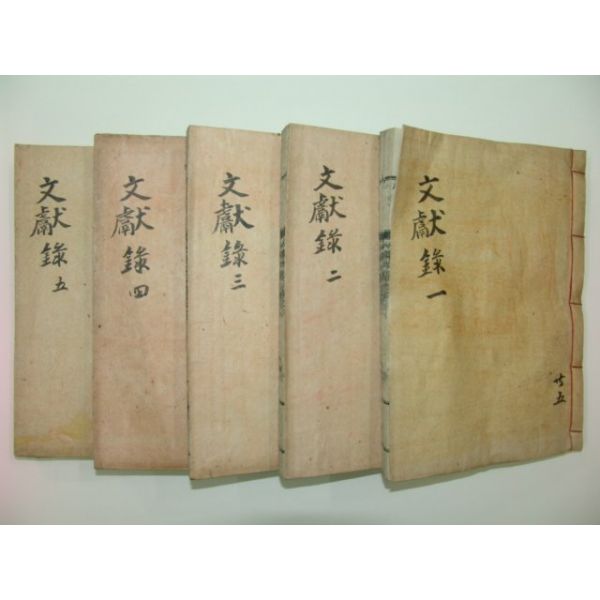 文獻錄 一
共五
文獻錄 二
文獻錄 三
文獻錄 四
文獻錄 五